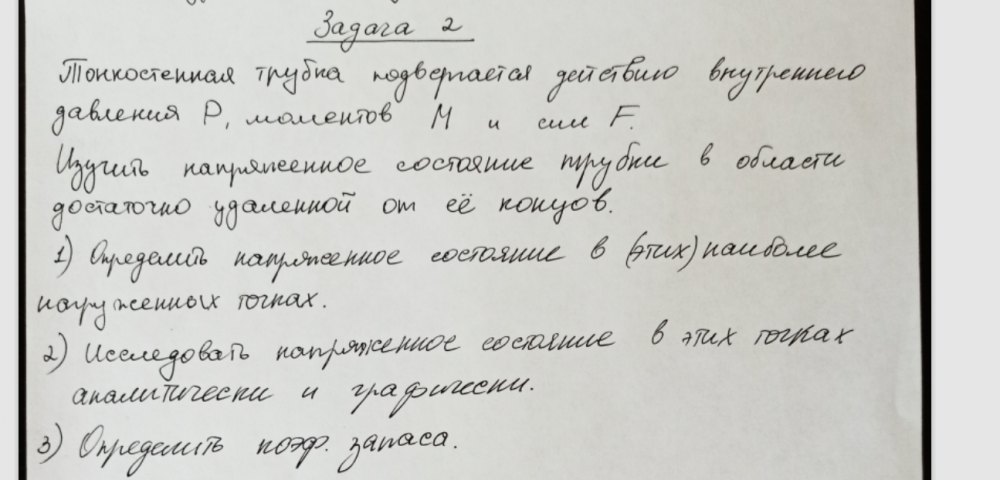 Задача 2
Тонкостенная трубка подвергается действию внутреннего
давления P, моментов M и сил F.
Изучить напряженное состояние трубки в области
достаточно удаленной от её концов.
1) Определить напряженное состояние в (этих) наиболее
нагруженных точках.
2) Исследовать напряженное состояние в этих точках
аналитически и графически.
3) Определить коэф. запаса.